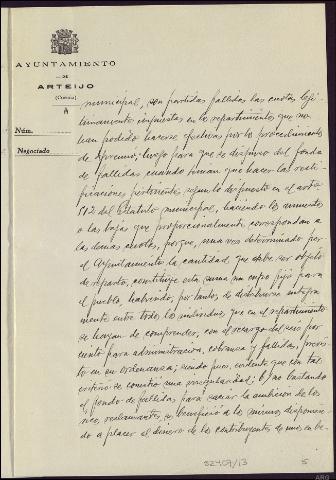 AYUNTAMIENTO
DE
ARTEIJO
(Coruña)
Núm.
Negociado
municipal, son partidas fallidas las cuotas legí-
timamente impuestas en los repartimientos que no
han podido hacerse efectivas por los procedimientos
de apremio; luego para que se dispuso del fondo
de fallidas cuando tenían que hacer las recti-
ficaciones pertinentes según lo dispuesto en el artº
512 del Estatuto municipal, haciendo los aumentos
o las bajas que proporcionalmente, correspondan a
las demás cuotas, porque, una vez determinado por
el Ayuntamiento la cantidad que debe ser objeto
de reparto, constituye esta suma un cupo fijo para
el pueblo, habiendo, por tanto, de distribuirse íntegra
mente entre todos los individuos que en el repartimiento
se hayan de comprender, con el recargo del seis por
ciento para administración, cobranza y fallidas, previs-
to en su ordenanza; siendo pues, evidente que con tal
criterio se cometió una irregularidad; y no bastando
el fondo de fallidas para saciar la ambición de los
reclamantes, se benefició a los mismos disponien-
do a placer el dinero de los contribuyentes de unos en be-
32459/13
5
ARG